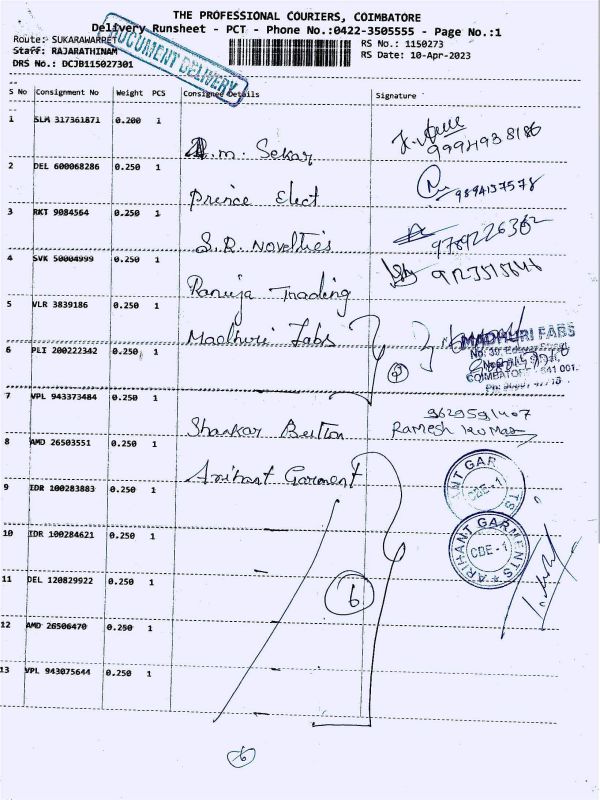 THE PROFESSIONAL COURIERS, COIMBATORE
Delivery Runsheet - PCT - Phone No.:0422-3505555 - Page No.:1
Route: SUKARAWARPET
RS No.: 1150273
Staff: RAJARATHINAM
RS Date: 10-Apr-2023
DRS No.: DCJB115027301
DOCUMENT DELIVERY
S No Consignment No Weight PCS Consignee Details Signature
1 SLM 317361871 0.200 1
R.m. Sekar 9994938186
2 DEL 600068286 0.250 1
Prince Elect 9894137578
3 RKT 9084564 0.250 1
S.R. Novelties
4 SVK 50004999 0.250 1
Ramija Trading
5 VLR 3839186 0.250 1
Madhuri Fabs
MADHURI FABS
6 PLI 200222342 0.250 1
COIMBATORE - 641 001.
7 VPL 943373484 0.250 1
9629591407
Shankar Button Ramesh Kumar
8 AMD 26503551 0.250 1
Arihant Garment
9 IDR 100283883 0.250 1
ANT GAR
CBE-1
TS
10 IDR 100284621 0.250 1
ARIHANT GARMENTS
CBE-1
11 DEL 120829922 0.250 1
6
12 AMD 26506470 0.250 1
13 VPL 943075644 0.250 1
6